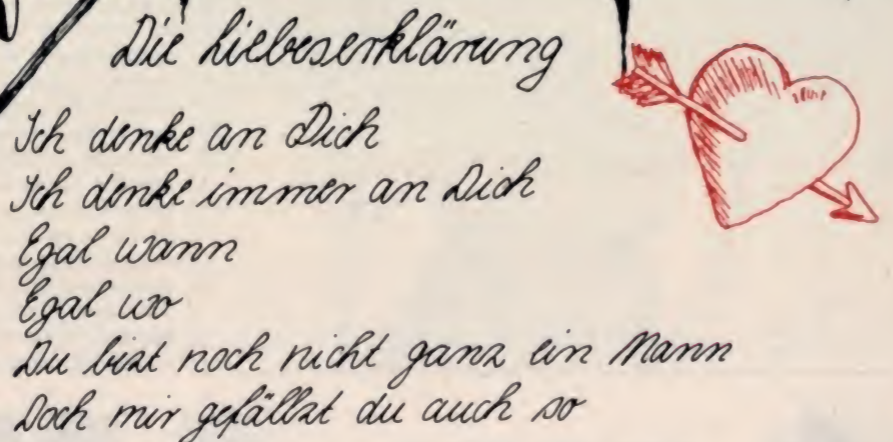 Die Liebeserklärung
Ich denke an Dich
Ich denke immer an Dich
Egal wann
Egal wo
Du bist noch nicht ganz ein Mann
Doch mir gefällst du auch so